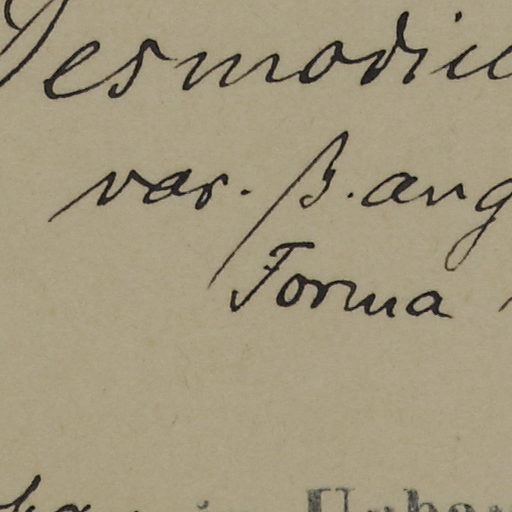 Desmodiu
var. β. ang
Forma